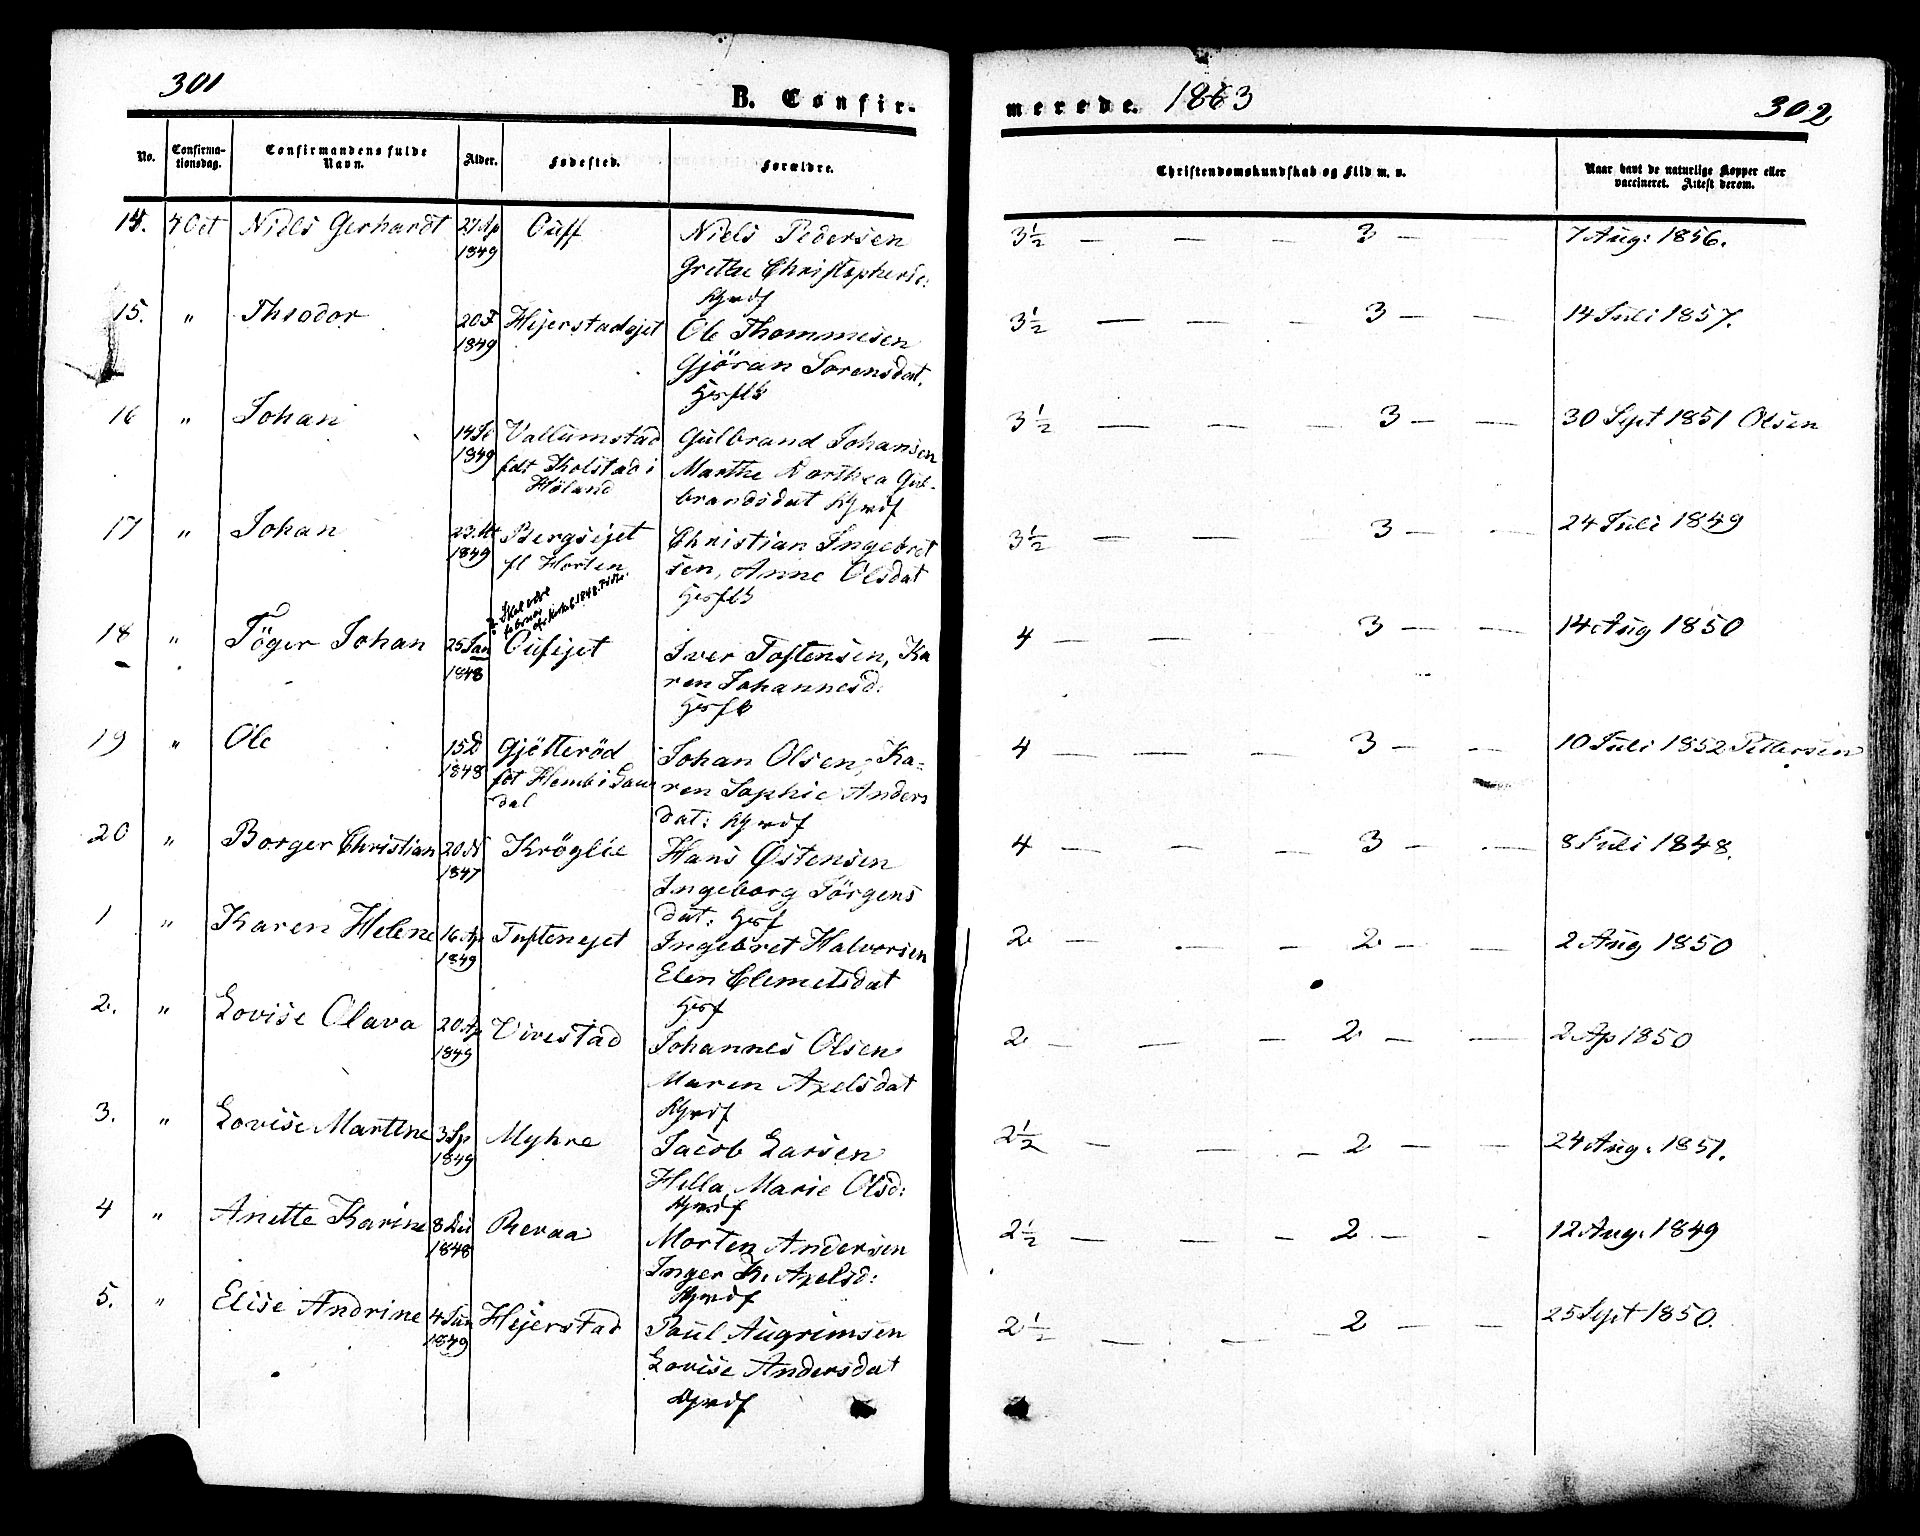 301
B. Confir-
merede. 1863
302
No.
Confirma-
tionsdag.
Confirmandens fulde
Navn.
Alder.
Fødested.
Forældre.
Christendomskundskab og Flid m. v.
Naar havt de naturlige Kopper eller
vaccineret. Attest derom.
14. 4 Oct Niels Gerhardt 27 Ap Niels Pedersen 3½ — — 3 — — 7 Aug: 1856.
1849 Grethe Christophersd:
Gmdf
15. " Theodor 20 F Hejerstadejet Ole Thommesen 3½ — — — 3 — — 14 Juli 1857.
1849 Gjöran Sorensdat.
16 " Johan 14 Se Vallumstad Gulbrand Johansen 3½ — — — 3 — — 30 Sept 1851 Olsen
1849 fdt Kolstad i Marthe Dorthea Gul-
Höland brandsdat Gmdf
17 " Johan 23 Bergsejet Christian Ingebret 3½ — — — 3 — — 24 Juli 1849
1849 fl Horten sen, Anne Olsdat
Skal være
1848
18 " Töger Johan 25 Jan Iver Toftensen, Ka 4 — — 3 — — 14 Aug 1850
1848 ren Johannesd:
19 " Ole 15 D Gjötteröd Johan Olsen, Ka- 4 — — — 3 — — 10 Juli 1852 Pettersen
1848 fdt Hemb i Sau ren Sophie Anders
dal dat: Gmdf
20 " Borger Christian 20 N Kröglie Hans Østensen 4 — — — 3 — — 8 Juli 1848.
1847 Ingeborg Jörgens
dat:
1 " Karen Helene 16 Ap Tuftenejet Ingebret Halvorsen 2 — — — 2 — — 2 Aug 1850
1849 Elen Clemetsdat
2. " Lovise Olava 20 Ap Vivestad Johannes Olsen 2 — — — 2 — — 2 Ap 1850
1849 Maren Axelsdat
Gmdf
3. " Lovise Martine 3 Sp Myhre Jacob Larsen 2½ — — — 2 — — 24 Aug: 1851.
1849 Hella Marie Olsd:
Gmdf
4 " Anette Karine 8 Dec Revaa Morten Andersen 2½ — — — 2 — — 12 Aug: 1849
1848 Inger K. Axelsd:
Gmdf
5. " Elise Andrine 4 Jun Hejerstad Paul Augrimsen 2½ — — — 2 — — 25 Sept 1850.
1849 Lovise Andersdat
Gmdf